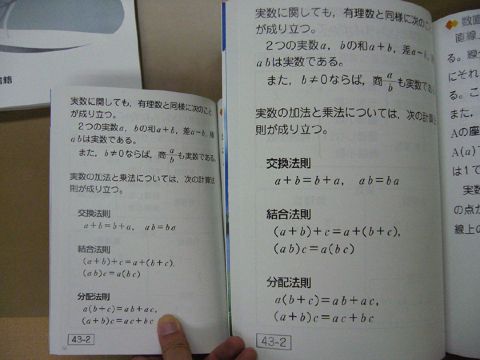 書籍
実数に関しても, 有理数と同様に次のこと
が成り立つ。
2つの実数a, bの和a+b, 差a−b, 積
abは実数である。
また, b≠0ならば, 商a/bも実数である。
実数の加法と乗法については, 次の計算法
則が成り立つ。
交換法則
a+b=b+a, ab=ba
結合法則
(a+b)+c=a+(b+c),
(ab)c=a(bc)
分配法則
a(b+c)=ab+ac,
(a+b)c=ac+bc
43-2
実数に関しても, 有理数と同様に次のこ
が成り立つ。
2つの実数a, bの和a+b, 差a−b,
abは実数である。
また, b≠0ならば, 商a/bも実数であ
実数の加法と乗法については, 次の計算
則が成り立つ。
交換法則
a+b=b+a, ab=ba
結合法則
(a+b)+c=a+(b+c),
(ab)c=a(bc)
分配法則
a(b+c)=ab+ac,
(a+b)c=ac+bc
43-2
数直
直線上
る。線分
にそれ
る。こ
また,
Aの座
A(a)
は1で
実数
の点か
線上の